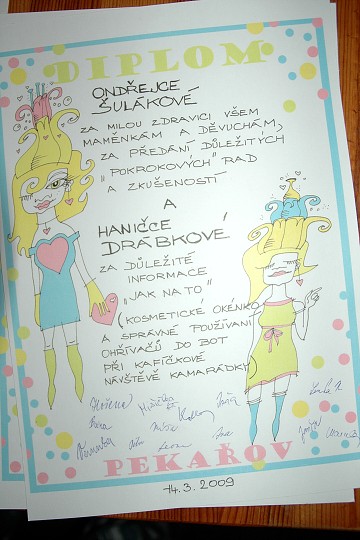 DIPLOM
ONDŘEJCE
ŠULÁKOVÉ
ZA MILOU ZDRAVICI VŠEM
MAMĚNKÁM A DĚVUCHÁM,
ZA PŘEDÁNÍ DŮLEŽITÝCH
"POKROKOVÝCH" RAD
A ZKUŠENOSTÍ
A
HANIČCE
DRÁBKOVÉ
ZA DŮLEŽITÉ
INFORMACE
"JAK NA TO"
(KOSMETICKÉ OKÉNKO
A SPRÁVNÉ POUŽÍVANÍ
OHŘÍVAČŮ DO BOT
PŘI KAFÍČKOVÉ
NÁVŠTĚVĚ KAMARÁDKY)
PEKAŘOV
14.3.2009